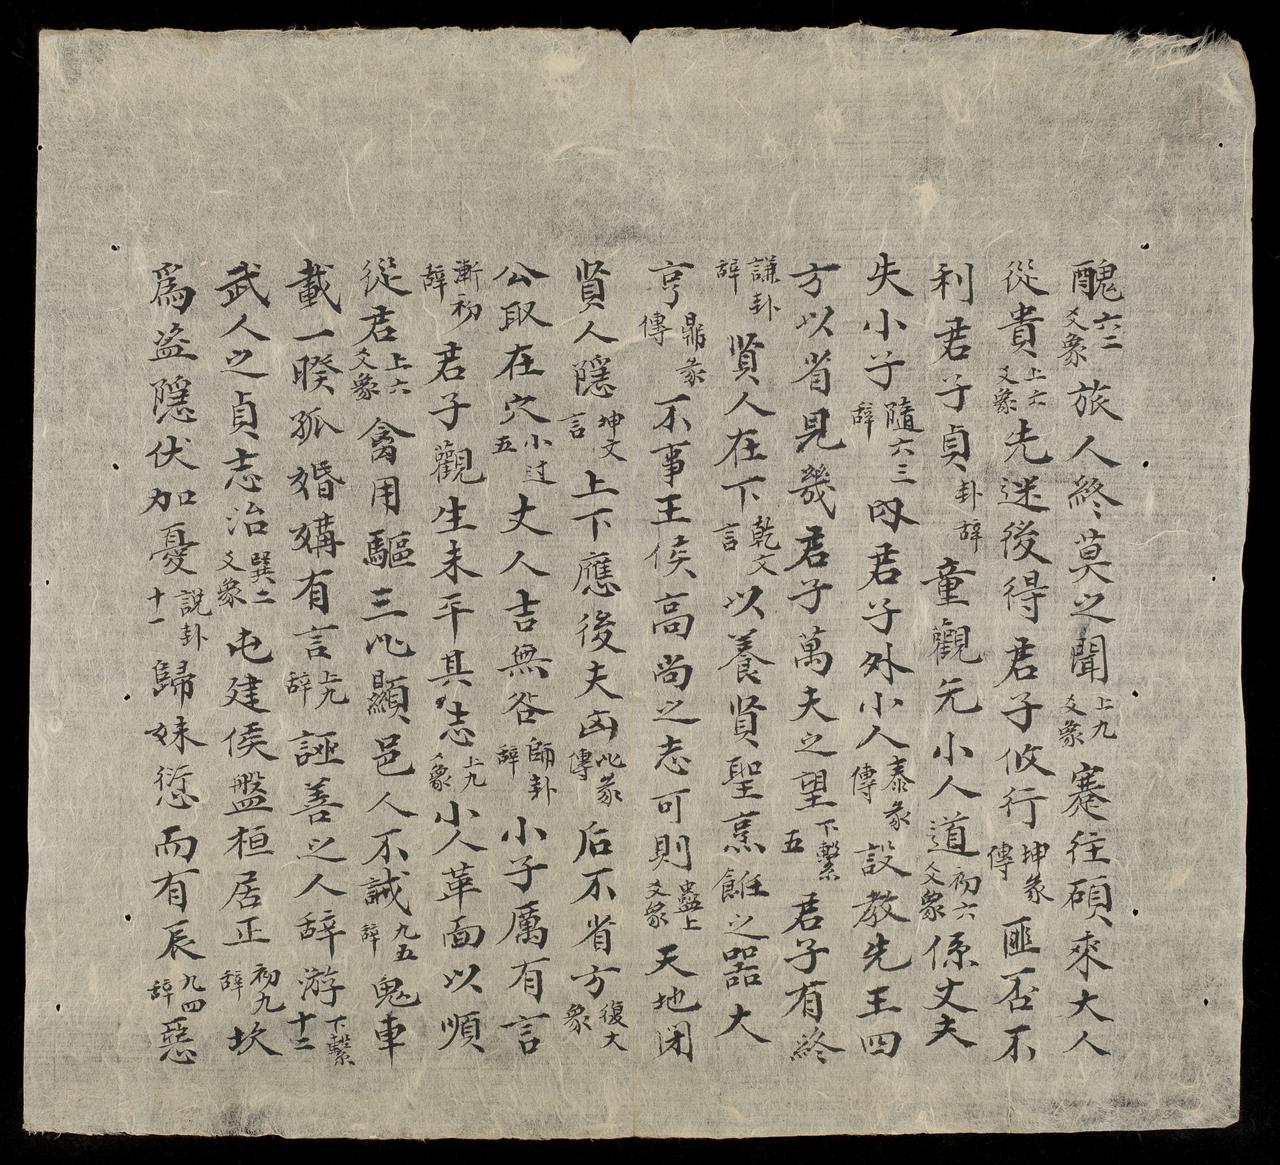 醜六二爻象旅人終莫之聞上九爻象蹇往碩來大人
從貴上六爻象先迷後得君子攸行坤彖傳匪否不
利君子貞卦辞童觀元小人道初六爻象係丈夫
失小子隨六三辞内君子外小人泰彖傳設教先王四
方以省見幾君子萬夫之望下繫五君子有終
謙卦辞賢人在下乾文言以養賢聖烹飪之器大
亨鼎彖傳不事王侯高尚之志可則蠱上爻象天地闭
賢人隱坤文言上下應後夫凶比彖傳后不省方復大象
公取在穴小过五丈人吉無咎師卦辞小子厲有言
漸初辞君子觀生未平其志上九象小人革面以順
從君上六爻象禽用驅三比顯邑人不誡九五辞鬼車
載一睽孤婚媾有言上九辞誣善之人辞游下繫十二
武人之貞志治巽二爻象屯建侯盤桓居正初九辞坎
為盗隱伏加憂説卦十一歸妹愆而有辰九四辞惡